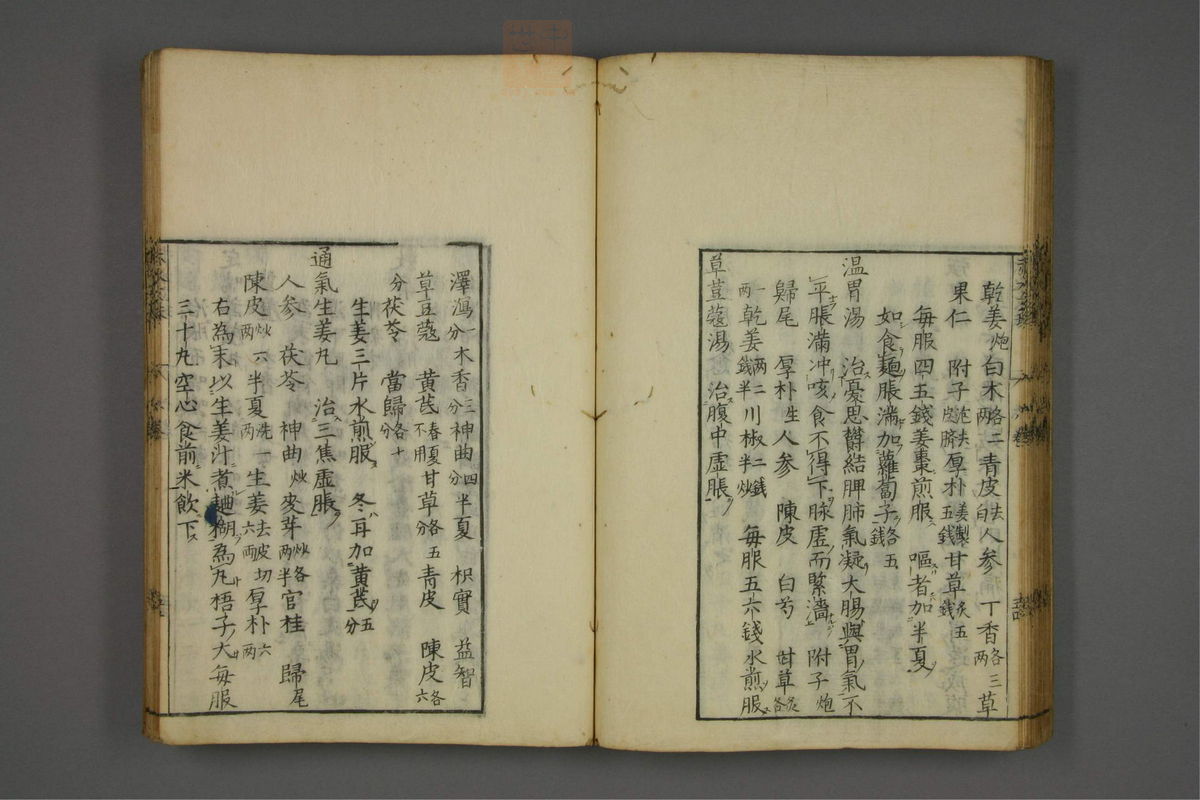 乾姜炮白木各二両青皮去白人参丁香各三両草
果仁附子炮去皮臍厚朴姜製五銭甘草炙五銭
毎服四五錢姜棗煎服ス嘔者ハ加半夏
如食麺脹滿加蘿蔔子各五銭
温胃湯治憂思欝結脾肺氣凝大腸與胃氣不
平脹滿冲咳食不得下脉虚而緊濇附子炮
歸尾厚朴生人参陳皮白芍甘草炙各
一両乾姜一両二銭半川椒二銭半炒毎服五六錢水煎服
草荳蔻湯治腹中虚脹
澤瀉一分木香三分神曲四分半夏枳實益智
草豆蔻黄芪春夏不用甘草各五分青皮陳皮各六
分茯苓當歸各十分
生姜三片水煎服冬月加黄芪五分
通氣生姜丸治三焦虚脹
人参茯苓神曲炒麥芽炒各両半官桂歸尾
陳皮炒六両半夏洗一両生姜去皮切六両厚朴六両
右為末以生姜汁煮麺糊為丸梧子大毎服
三十丸空心食前米飲下